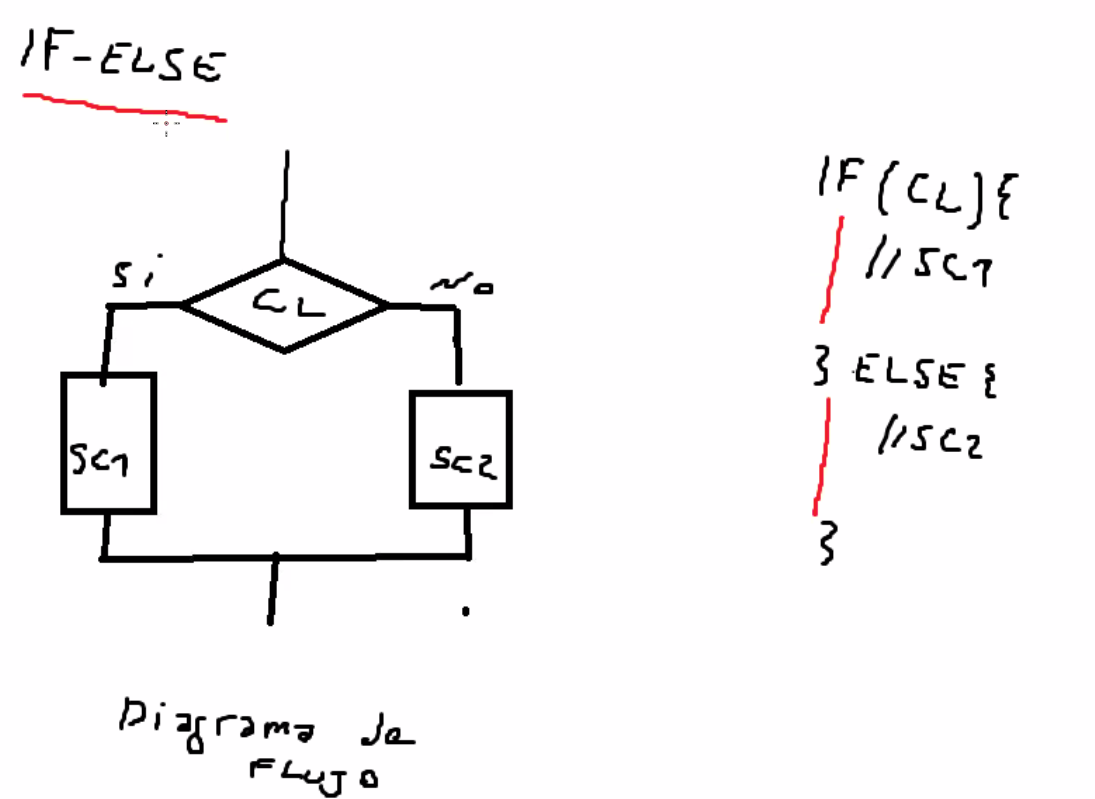 IF-ELSE
Si
No
CL
SC1
SC2
Diagrama de
FLUJO
IF (CL) {
//SC1
} ELSE {
//SC2
}